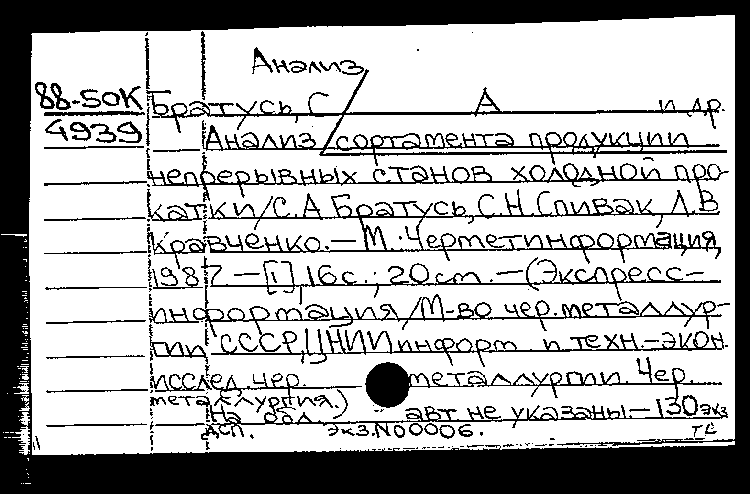 Анализ
88-50К Братусь, С А и др.
4939 Анализ сортамента продукции
непрерывных станов холодной про-
катки/С.А Братусь, С.Н.Спивак, Л.В
Кравченко.-М.:Черметинформация,
1987.-[1], 16с.; 20см.-(Экспресс-
информация/М-во чер.металлур-
гии СССР, ЦНИИинформ и техн.-экон.
исслед. чер. металлургии. Чер.
металлургия.)
На обл. авт не указаны.-130экз
ДСП. Экз.N00006.